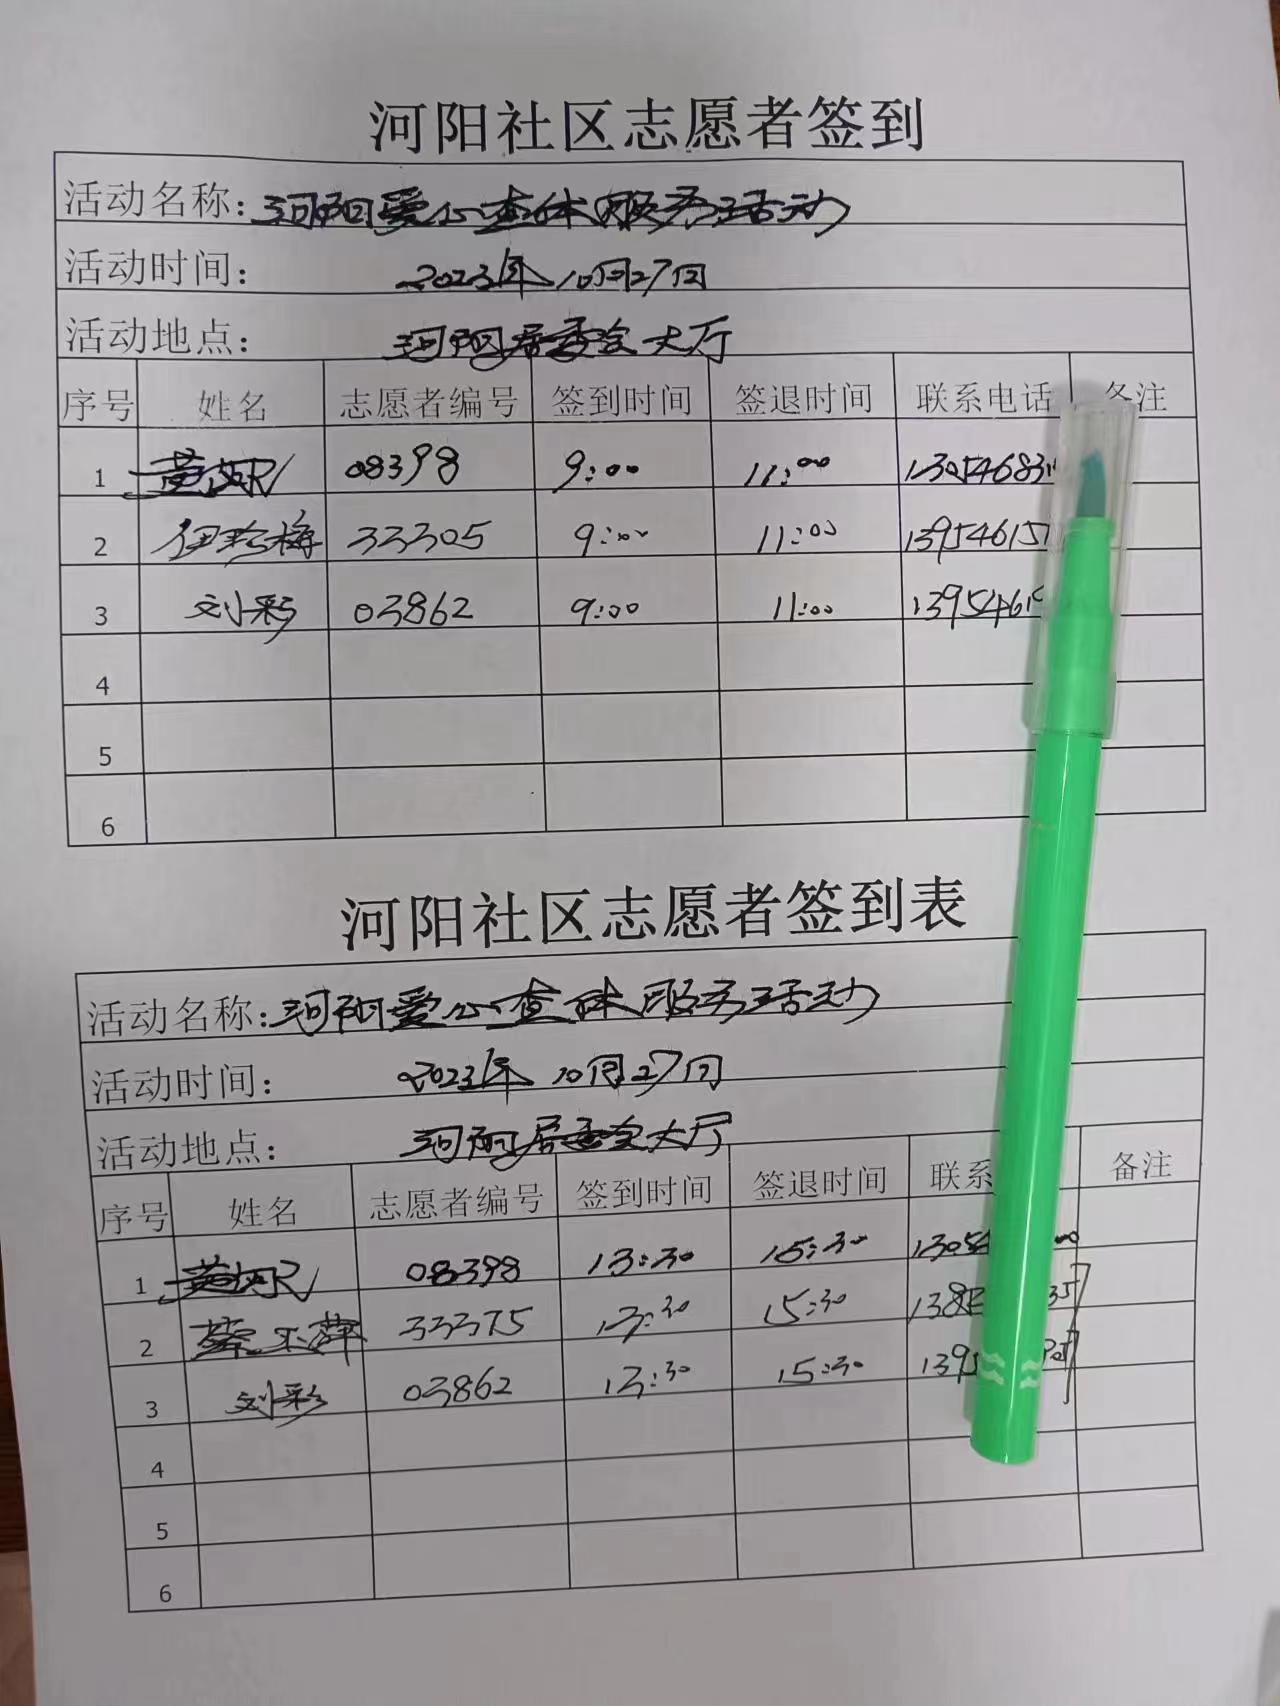 河阳社区志愿者签到
活动名称：河阳爱心查体服务活动
活动时间： 2023年10月27日
活动地点： 河阳居委会大厅
序号 姓名 志愿者编号 签到时间 签退时间 联系电话 备注
1 08398 9:00 11:00
2 伊珍梅 33305 9:00 11:00
3 刘彩 03862 9:00 11:00
4
5
6
河阳社区志愿者签到表
活动名称：河阳爱心查体服务活动
活动时间： 2023年10月27日
活动地点： 河阳居委会大厅
序号 姓名 志愿者编号 签到时间 签退时间 联系 备注
1 08398 13:30 15:30
2 33375 13:30 15:30
3 刘彩 03862 13:30 15:30
4
5
6